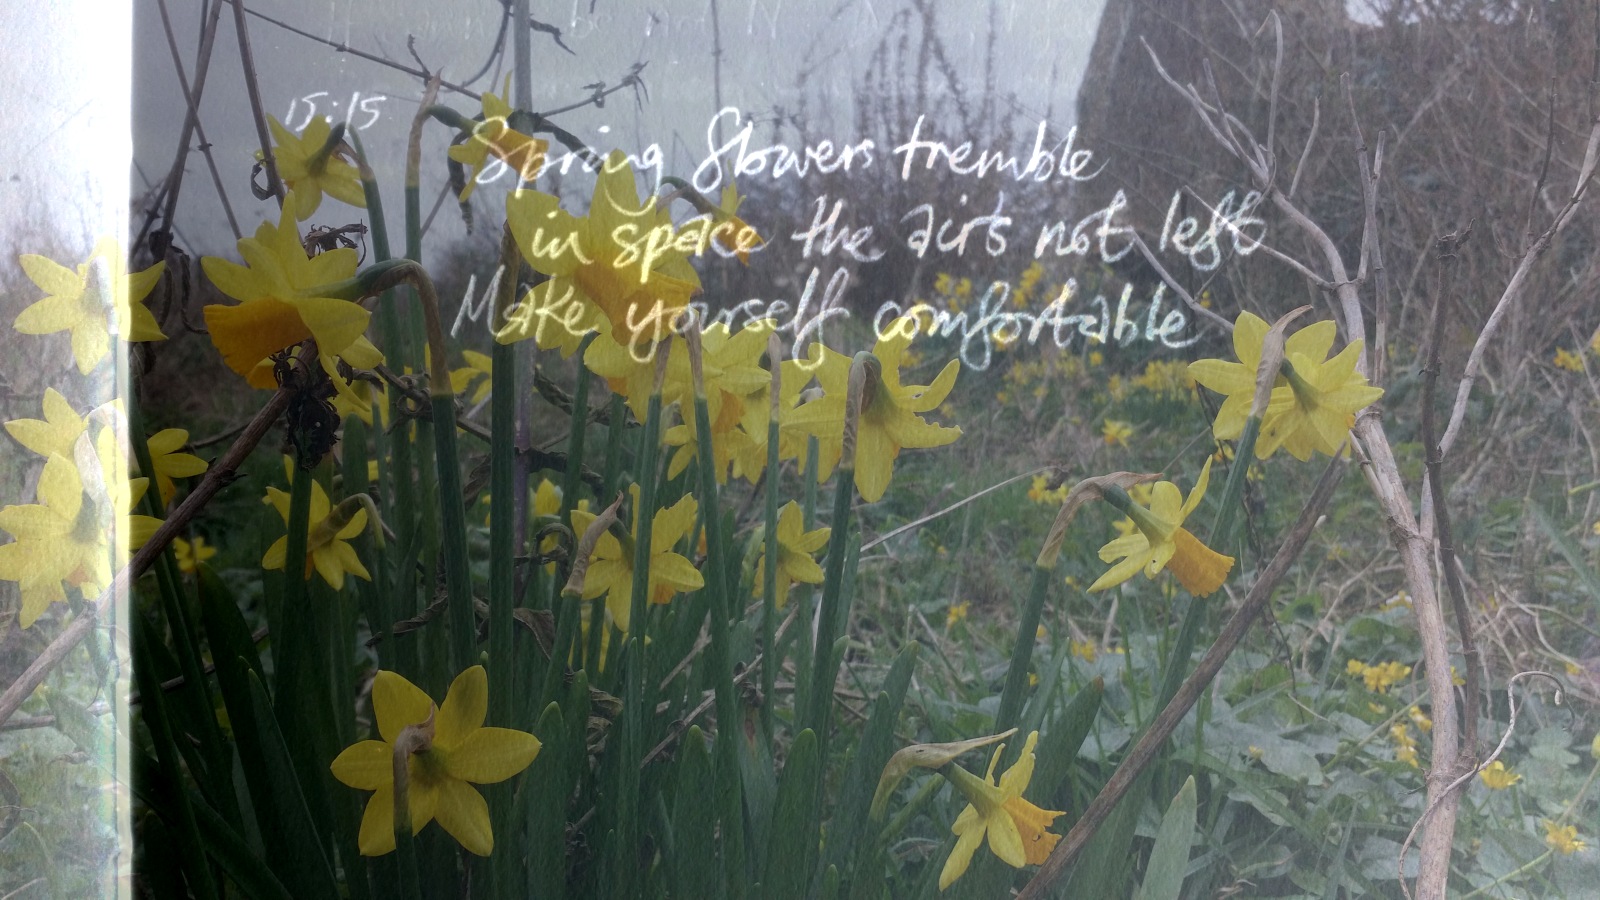 15:15
Spring flowers tremble
in space the air's not left
Make yourself comfortable